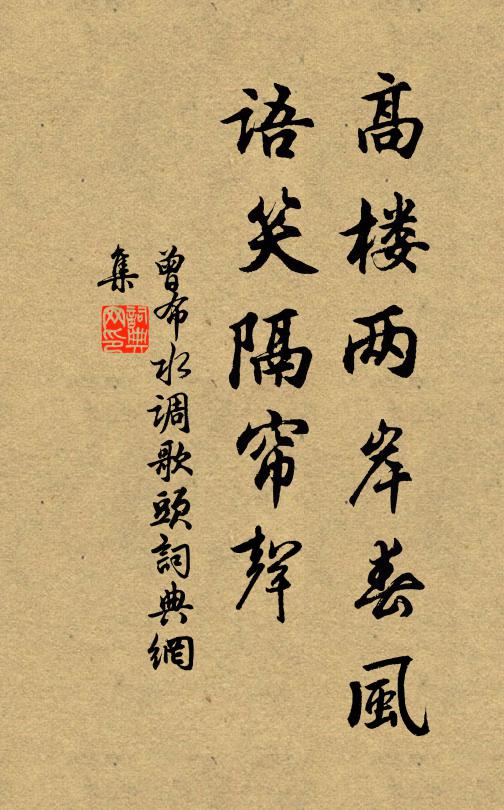 高楼两岸春风
语笑隔帘声
曾布水调歌头詞典網
集
詞典
网印